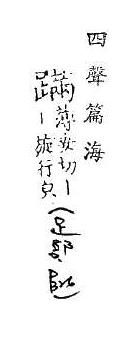 四聲篇海
蹣
薄安切丨
丨旋行皃
(足部